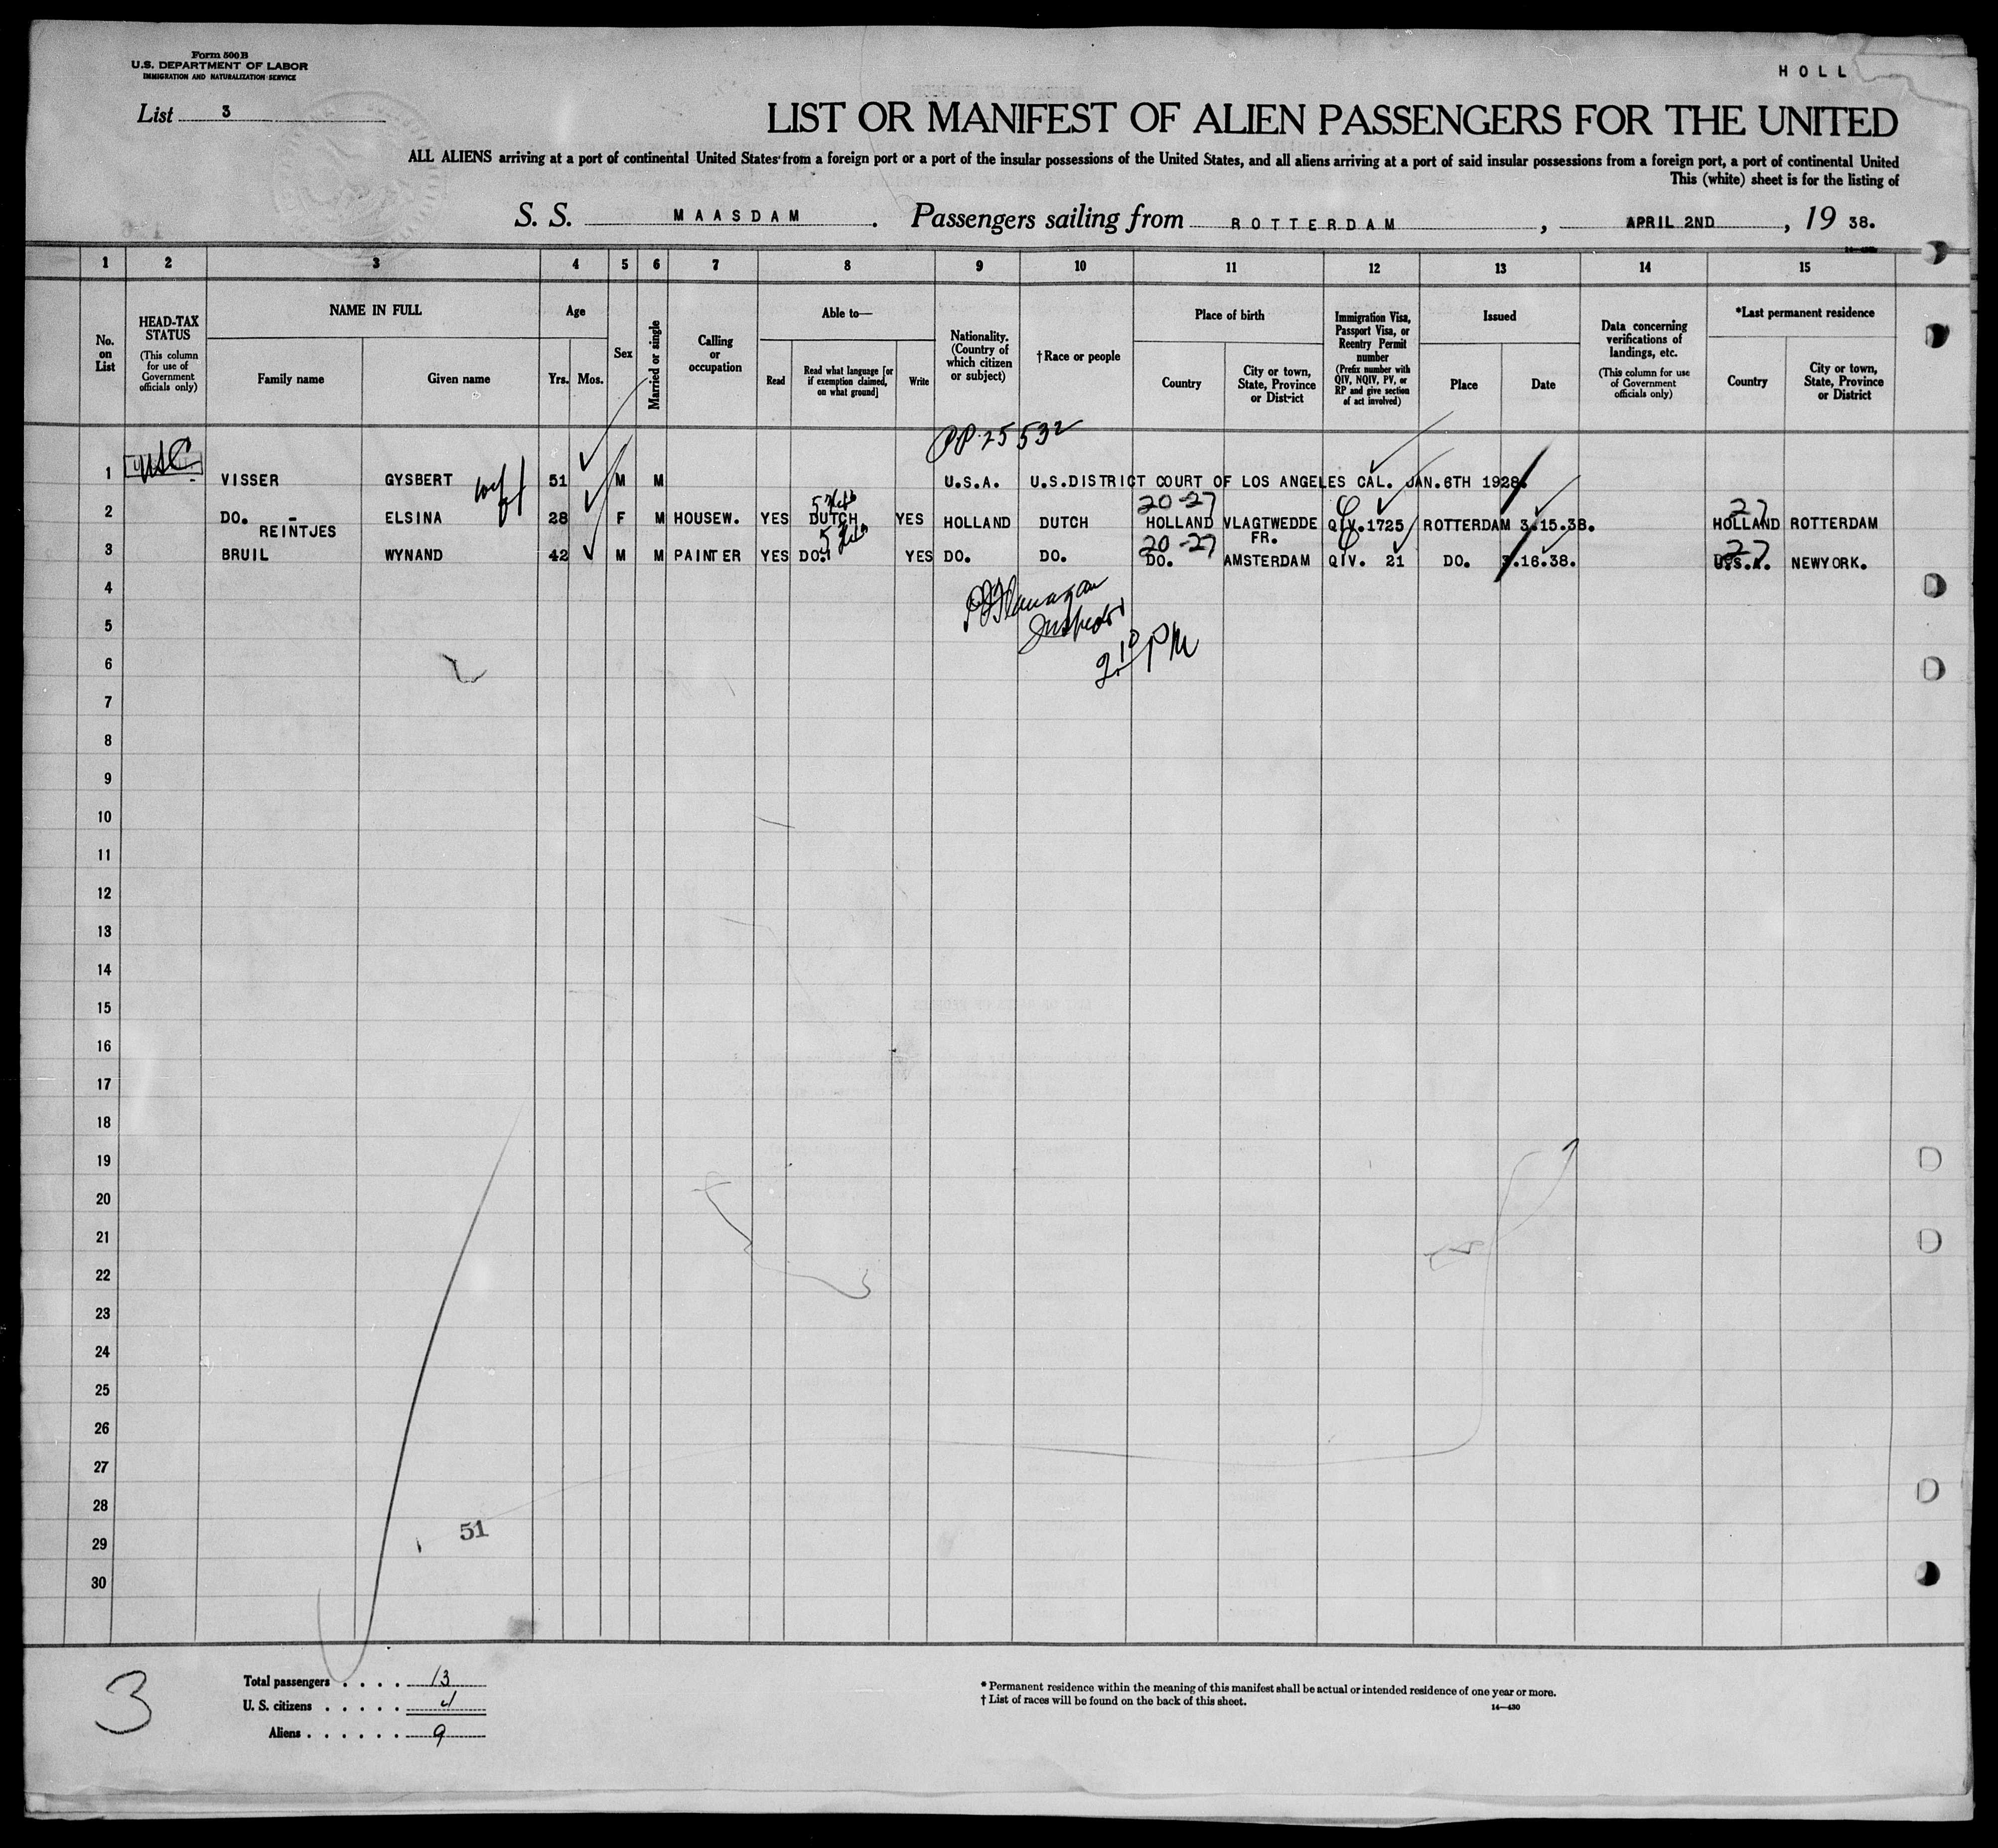 Form 500 B
U.S. DEPARTMENT OF LABOR
IMMIGRATION AND NATURALIZATION SERVICE
HOLL
List 3
LIST OR MANIFEST OF ALIEN PASSENGERS FOR THE UNITED
ALL ALIENS arriving at a port of continental United States from a foreign port or a port of the insular possessions of the United States, and all aliens arriving at a port of said insular possessions from a foreign port, a port of continental United
This (white) sheet is for the listing of
S. S. MAASDAM. Passengers sailing from ROTTERDAM, APRIL 2ND, 19 38.
1 2 3 4 5 6 7 8 9 10 11 12 13 14 15
No. on List
HEAD-TAX STATUS (This column for use of Government officials only)
NAME IN FULL
Family name
Given name
Age
Yrs. Mos.
Sex
Married or single
Calling or occupation
Able to—
Read
Read what language [or if exemption claimed, on what ground]
Write
Nationality. (Country of which citizen or subject)
†Race or people
Place of birth
Country
City or town, State, Province or District
Immigration Visa, Passport Visa, or Reentry Permit number (Prefix number with QIV, NQIV, PV, or RP and give section of act involved)
Issued
Place
Date
Data concerning verifications of landings, etc. (This column for use of Government officials only)
*Last permanent residence
Country
City or town, State, Province or District
PP 25532
1 USC VISSER GYSBERT 51 M M U.S.A. U.S.DISTRICT COURT OF LOS ANGELES CAL. JAN.6TH 1928.
20-27 27
2 DO. - ELSINA 28 F M HOUSEW. YES DUTCH YES HOLLAND DUTCH HOLLAND VLAGTWEDDE QIV.1725 ROTTERDAM 3.15.38. HOLLAND ROTTERDAM
REINTJES FR.
20-27 27
3 BRUIL WYNAND 42 M M PAINTER YES DO. YES DO. DO. DO. AMSTERDAM QIV. 21 DO. 3.16.38. U.S.A. NEWYORK.
4
Inspector
5
2 10 PM
6
7
8
9
10
11
12
13
14
15
16
17
18
19
20
21
22
23
24
25
26
27
28
51
29
30
3
Total passengers . . . . 13
U. S. citizens . . . . . 4
Aliens . . . . . . 9
* Permanent residence within the meaning of this manifest shall be actual or intended residence of one year or more.
† List of races will be found on the back of this sheet.
14—430